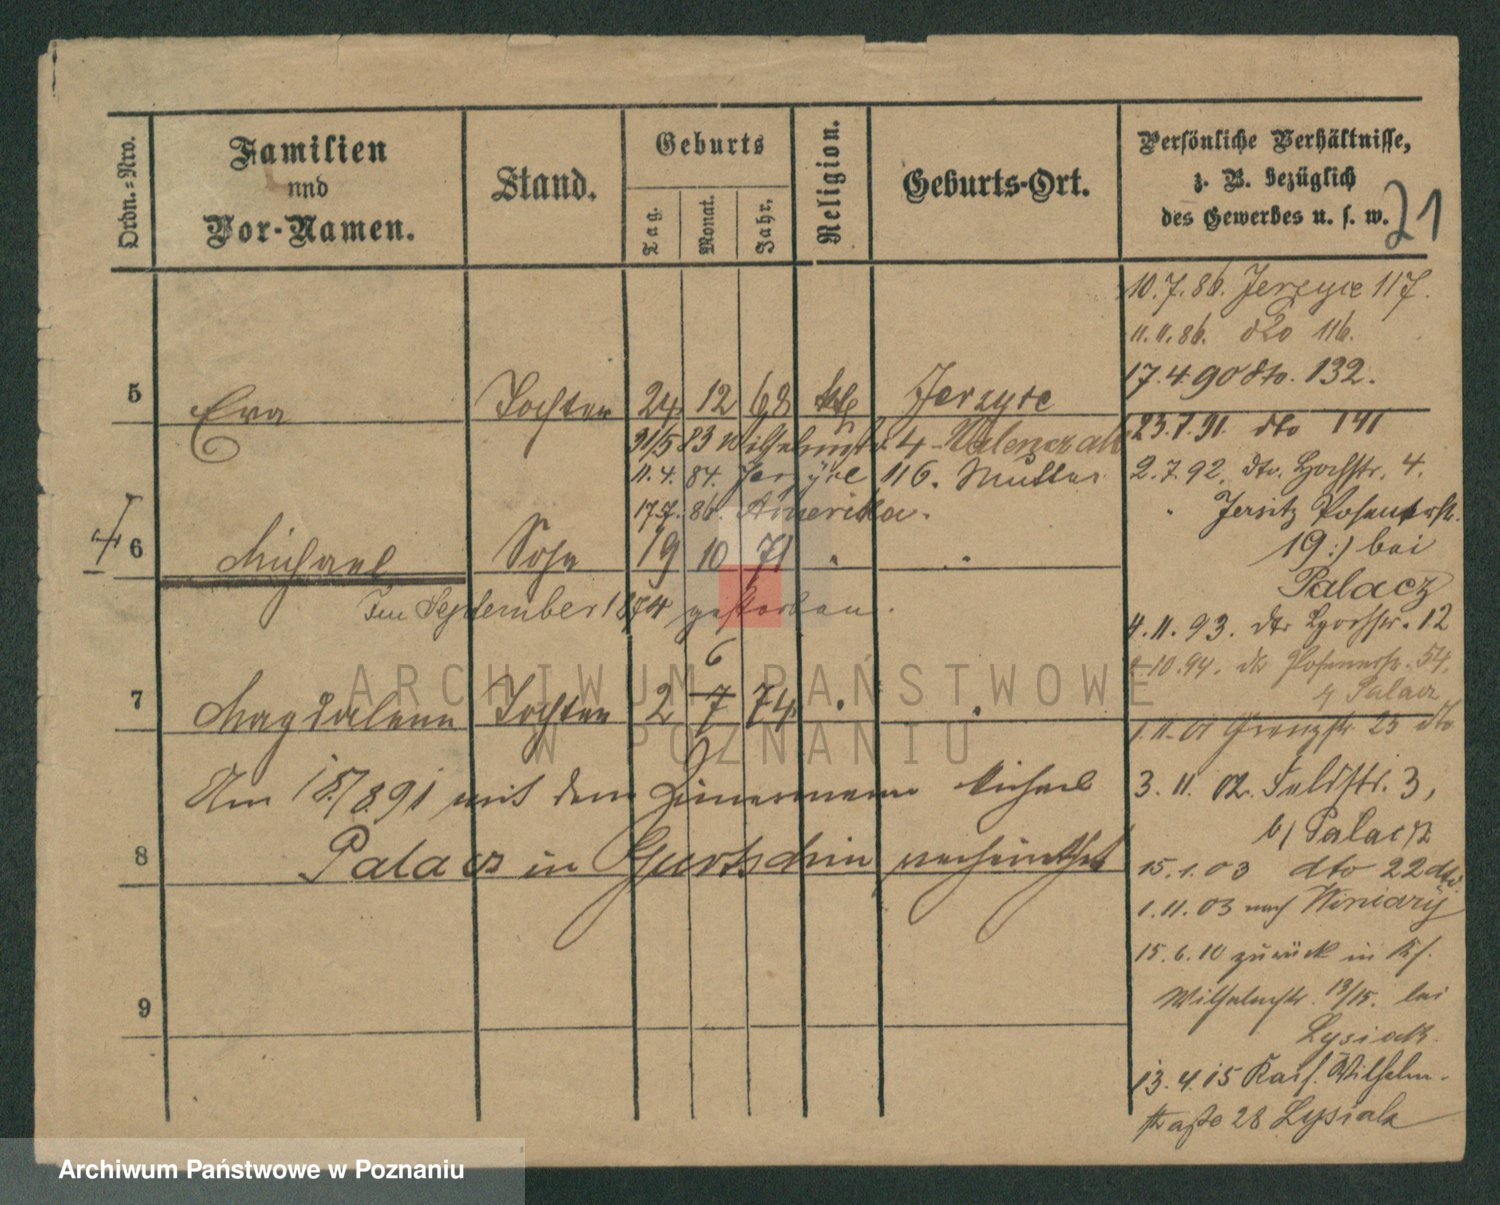 Ordn.-Nro.
Familien
und
Vor-Namen.
Stand.
Geburts
Tag.
Monat.
Jahr.
Religion.
Geburts-Ort.
Persönliche Verhältnisse,
z. B. bezüglich
des Gewerbes u. s. w.
21
10.7.86. Jerzyce 117.
11.11.86. dto 116.
17.4.90 dto. 132.
5 Eva Tochter 24 12 68 kth Jerzyce
23.7.91. dto 141
31/5 83 Wilhelmstr. 4 Walenczak
11.4.84. Jerzyce 116. Mutter
2.7.92. dto. Hochstr. 4.
17.7.86. Amerika.
" Jersitz Posenerstr.
19 :/ bei
Palacz
6 Michael Sohn 19 10 71 " "
Im September 1874 gestorben.
4.11.93. dto Hochstr. 12
1.10.94. dto Posenerstr. 54.
b/ Palacz
6
7 Magdalena Tochter 2 7 74 " "
1.11.01 Grenzstr 25 dto
Am 18/7 891 mit dem Zimmermann Michael
3.11.02. Feldstr. 3,
b/ Palacz
8 Palacz in Gurtschin verheirathet
15.1.03 dto 22 dto.
1.11.03 nach Winiary
15.6.10 zurück in Ks.
Wilhelmstr. 13/15. bei
9
Lysiak.
13.4.15 Kais. Wilhelm-
straße 28 Lysiak
ARCHIWUM PAŃSTWOWE
W POZNANIU
Archiwum Państwowe w Poznaniu